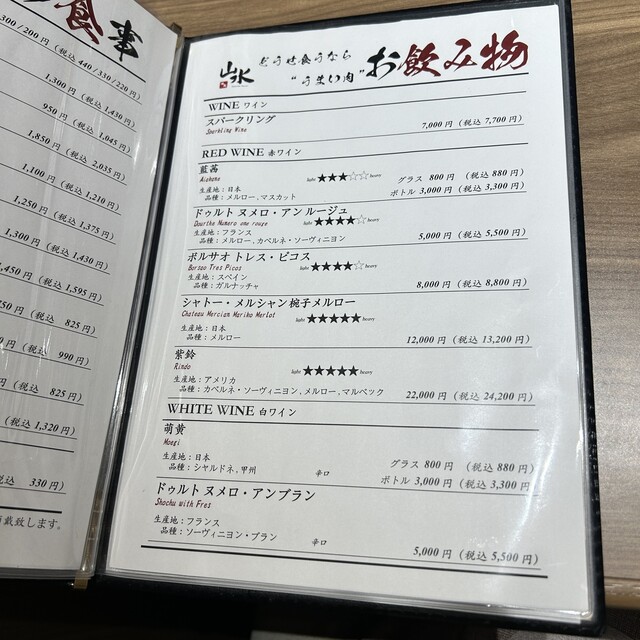 食事
300/200 円 (税込 440/330/220円)
1,300 円 (税込 1,430円)
950 円 (税込 1,045円)
1,850 円 (税込 2,035円)
1,100 円 (税込 1,210円)
1,250 円 (税込 1,375円)
1,300 円 (税込 1,430円)
,450 円 (税込 1,595円)
50 円 (税込 825円)
円 (税込 990円)
円 (税込 825円)
(税込 1,320円)
税込 330円)
戴致します。
山水
どうせ食うなら
“うまい肉”
お飲み物
WINE ワイン
スパークリング
Sparkling Wine
7,000円 (税込 7,700円)
RED WINE 赤ワイン
藍茜
Aiakane
light ★★★☆☆ heavy
グラス 800円 (税込 880円)
生産地:日本
ボトル 3,000円 (税込 3,300円)
品種:メルロー,マスカット
ドゥルト ヌメロ・アン ルージュ
Dourthe Numero one rouge
light ★★★★☆ heavy
生産地:フランス
品種:メルロー,カベルネ・ソーヴィニヨン
5,000円 (税込 5,500円)
ボルサオ トレス・ピコス
Borsao Tres Picos
light ★★★★☆ heavy
生産地:スペイン
品種:ガルナッチャ
8,000円 (税込 8,800円)
シャトー・メルシャン 椀子メルロー
Chateau Mercian Mariko Merlot
light ★★★★★ heavy
生産地:日本
品種:メルロー
12,000円 (税込 13,200円)
紫鈴
Rindo
light ★★★★★ heavy
生産地:アメリカ
品種:カベルネ・ソーヴィニヨン,メルロー,マルベック
22,000円 (税込 24,200円)
WHITE WINE 白ワイン
萌黄
Moegi
生産地:日本
グラス 800円 (税込 880円)
品種:シャルドネ,甲州
辛口
ボトル 3,000円 (税込 3,300円)
ドゥルト ヌメロ・アンブラン
Shochu with Fres
生産地:フランス
品種:ソーヴィニヨン・ブラン
辛口
5,000円 (税込 5,500円)